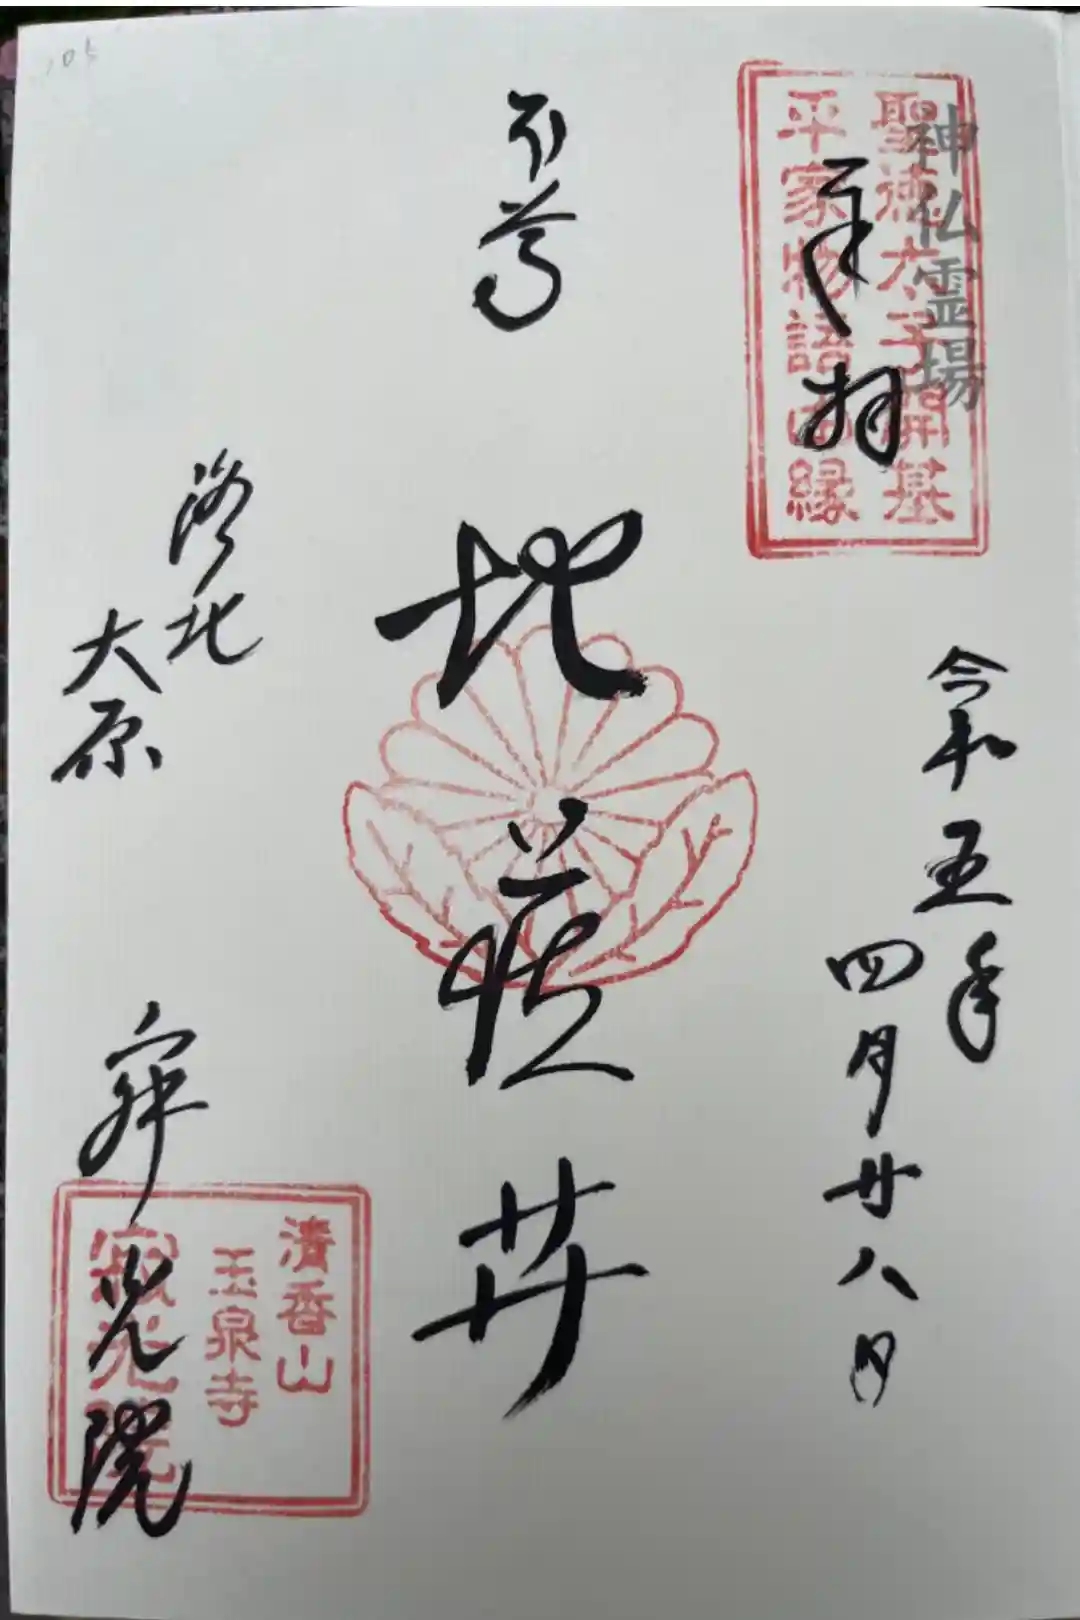 神仏霊場
聖徳太子開基
平家物語由縁
奉拝
令和五年
四月廿八日
本尊
地蔵𦬇
洛北
大原
寂光院
清香山
玉泉寺
寂光院